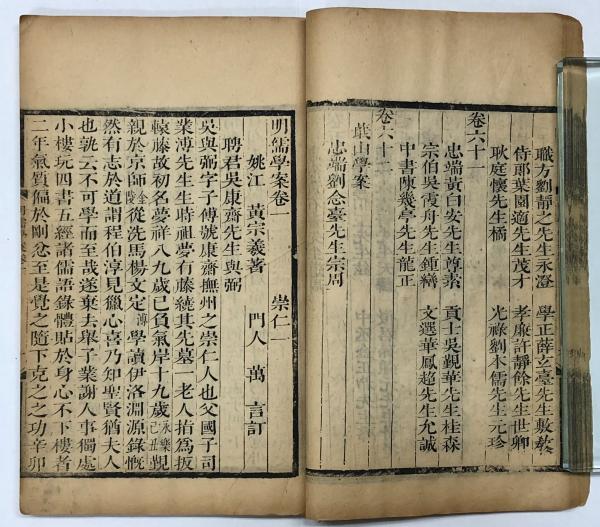 職方劉靜之先生永澄 學正薛玄臺先生敷教
侍郎葉園適先生茂才 孝廉許靜餘先生世卿
耿庭懷先生橘 光祿劉本儒先生元珍
卷六十一
忠端黃白安先生尊素 貢士吳覲華先生桂森
宗伯吳霞舟先生鍾巒 文選華鳳超先生允誠
中書陳幾亭先生龍正
卷六十二
蕺山學案
忠端劉念臺先生宗周
明儒學案卷一 崇仁一
姚江 黃宗羲著 門人 萬 言訂
聘君吳康齋先生與弼
吳與弼字子傅號康齋撫州之崇仁人也父國子司
業溥先生生時祖夢有藤繞其先墓一老人指為扳
轅藤故初名夢祥八九歲已負氣岸十九歲永樂己丑覲
親於京師金陵從洗馬楊文定溥學讀伊洛淵源錄慨
然有志於道謂程伯淳見獵心喜乃知聖賢猶夫人
也孰云不可學而至哉遂棄去舉子業謝人事獨處
小樓玩四書五經諸儒語錄體貼於身心不下樓者
二年氣質偏於剛忿至是覺之隨下克之之功辛卯